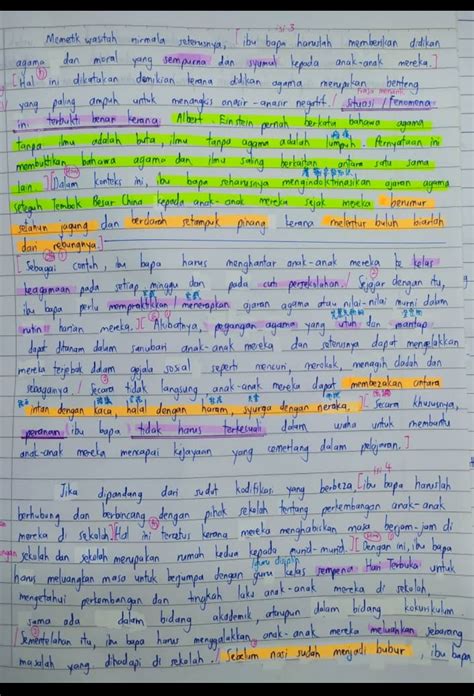 isi 3
Memetik wasitah nirmala seterusnya, [ibu bapa haruslah memberikan didikan
agama dan moral yang sempurna dan syumul kepada anak-anak mereka.]
[Hal ini dikatakan demikian kerana didikan agama merupakan benteng
yang paling ampuh untuk menangkis anasir-anasir negatif./ Situasi/Fenomena
ini terbukti benar kerana Albert Einstein pernah berkata bahawa agama
tanpa ilmu adalah buta, ilmu tanpa agama adalah lumpuh. Pernyataan ini
membuktikan bahawa agama dan ilmu saling berkaitan antara satu sama
lain.][Dalam konteks ini, ibu bapa seharusnya mengindoktrinasikan ajaran agama
seteguh Tembok Besar China kepada anak-anak mereka sejak mereka berumur
setahun jagung dan berdarah setampuk pinang kerana melentur buluh biarlah
dari rebungnya.]
[Sebagai contoh, ibu bapa harus menghantar anak-anak mereka ke kelas
keagamaan pada setiap minggu dan pada cuti persekolahan./ Sejajar dengan itu,
ibu bapa perlu mempraktikkan/menerapkan ajaran agama atau nilai-nilai murni dalam
rutin harian mereka.][Akibatnya, pegangan agama yang utuh dan mantap
dapat ditanam dalam sanubari anak-anak mereka dan seterusnya dapat mengelakkan
mereka terjebak dalam gejala sosial seperti mencuri, merokok, menagih dadah dan
sebagainya./ Secara tidak langsung anak-anak mereka dapat membezakan antara
intan dengan kaca, halal dengan haram, syurga dengan neraka.][Secara khususnya,
peranan ibu bapa tidak harus terkecuali dalam usaha untuk membantu
anak-anak mereka mencapai kejayaan yang cemerlang dalam pelajaran.]
isi 4
Jika dipandang dari sudut kodifikasi yang berbeza, [ibu bapa haruslah
berhubung dan berbincang dengan pihak sekolah tentang perkembangan anak-anak
mereka di sekolah.][Hal ini tercetus kerana mereka menghabiskan masa berjam-jam di
sekolah dan sekolah merupakan rumah kedua kepada murid-murid.][Dengan ini, ibu bapa
harus meluangkan masa untuk berjumpa dengan guru kelas sempena Hari Terbuka untuk
mengetahui perkembangan dan tingkah laku anak-anak mereka di sekolah,
sama ada dalam bidang akademik, ataupun dalam bidang kokurikulum.
/ Sementelahan itu, ibu bapa harus menggalakkan anak-anak mereka meluahkan sebarang
masalah yang dihadapi di sekolah./ Sebelum nasi sudah menjadi bubur, ibu bapa